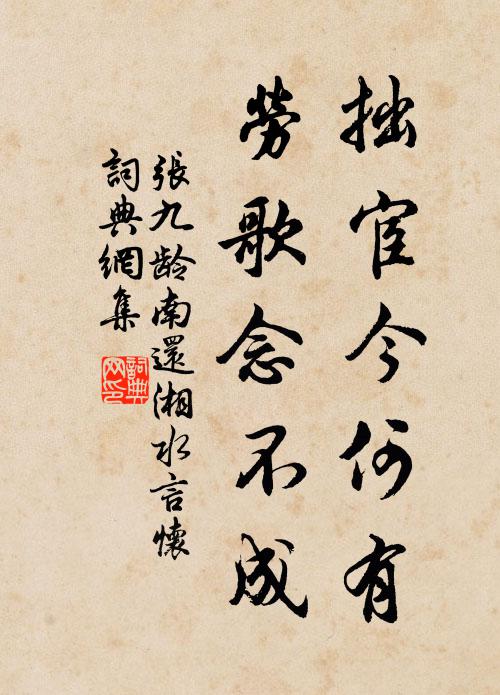 拙宦今何有
勞歌念不成
張九齡南還湘水言懷
詞典網集
詞典
网印